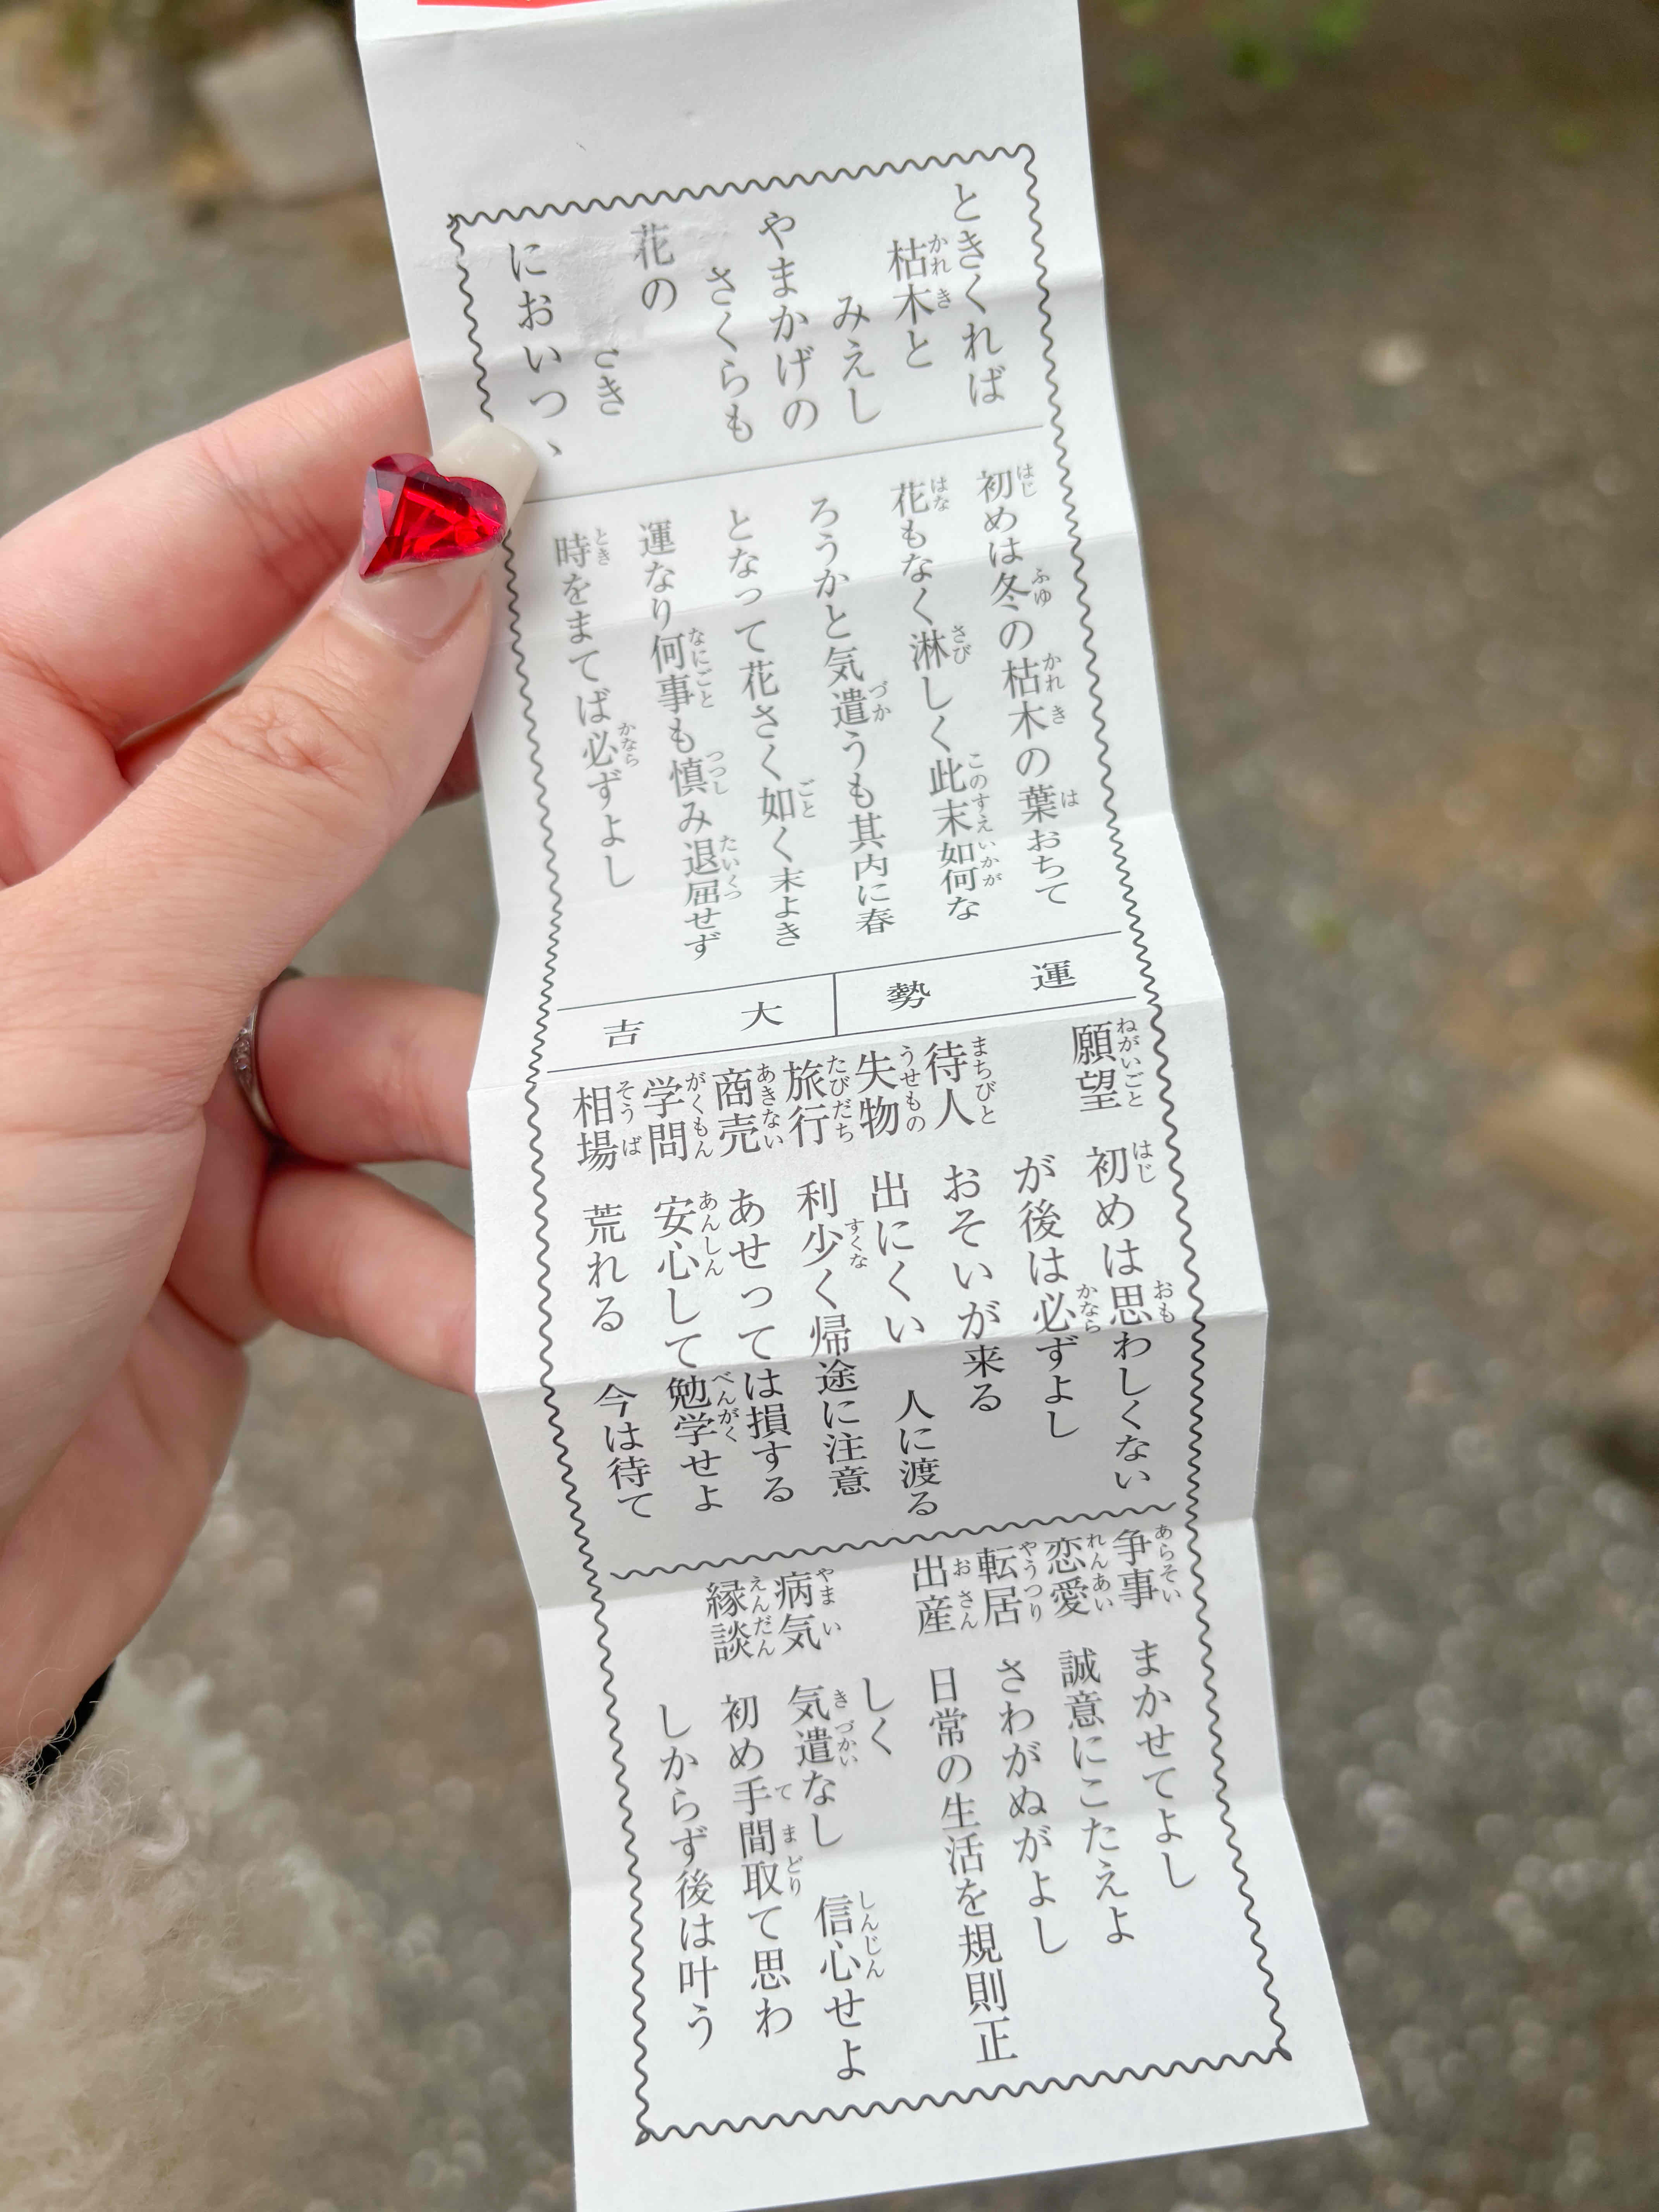 ときくれば
枯木と
みえし
やまかげの
さくらも
花の
さき
においつゝ
初めは冬の枯木の葉おちて
花もなく淋しく此末如何な
ろうかと気遣うも其内に春
となって花さく如く末よき
運なり何事も慎み退屈せず
時をまてば必ずよし
運勢
大吉
願望 初めは思わしくない
が後は必ずよし
待人 おそいが来る
失物 出にくい 人に渡る
旅行 利少く帰途に注意
商売 あせっては損する
学問 安心して勉学せよ
相場 荒れる 今は待て
争事 まかせてよし
恋愛 誠意にこたえよ
転居 さわがぬがよし
出産 日常の生活を規則正
しく
病気 気遣なし 信心せよ
縁談 初め手間取て思わ
しからず後は叶う